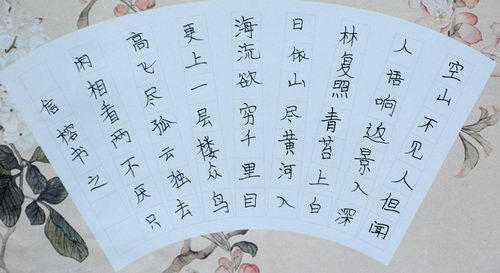 空山不见人但闻
人语响返景入深
林复照青苔上白
日依山尽黄河入
海流欲穷千里目
更上一层楼众鸟
高飞尽孤云独去
闲相看两不厌只
信榕书之